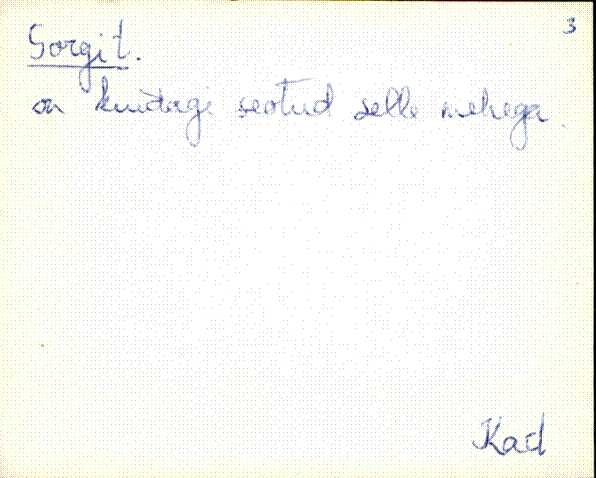 3
Sorgit.
on kuidagi seotud selle mehega.
Kad